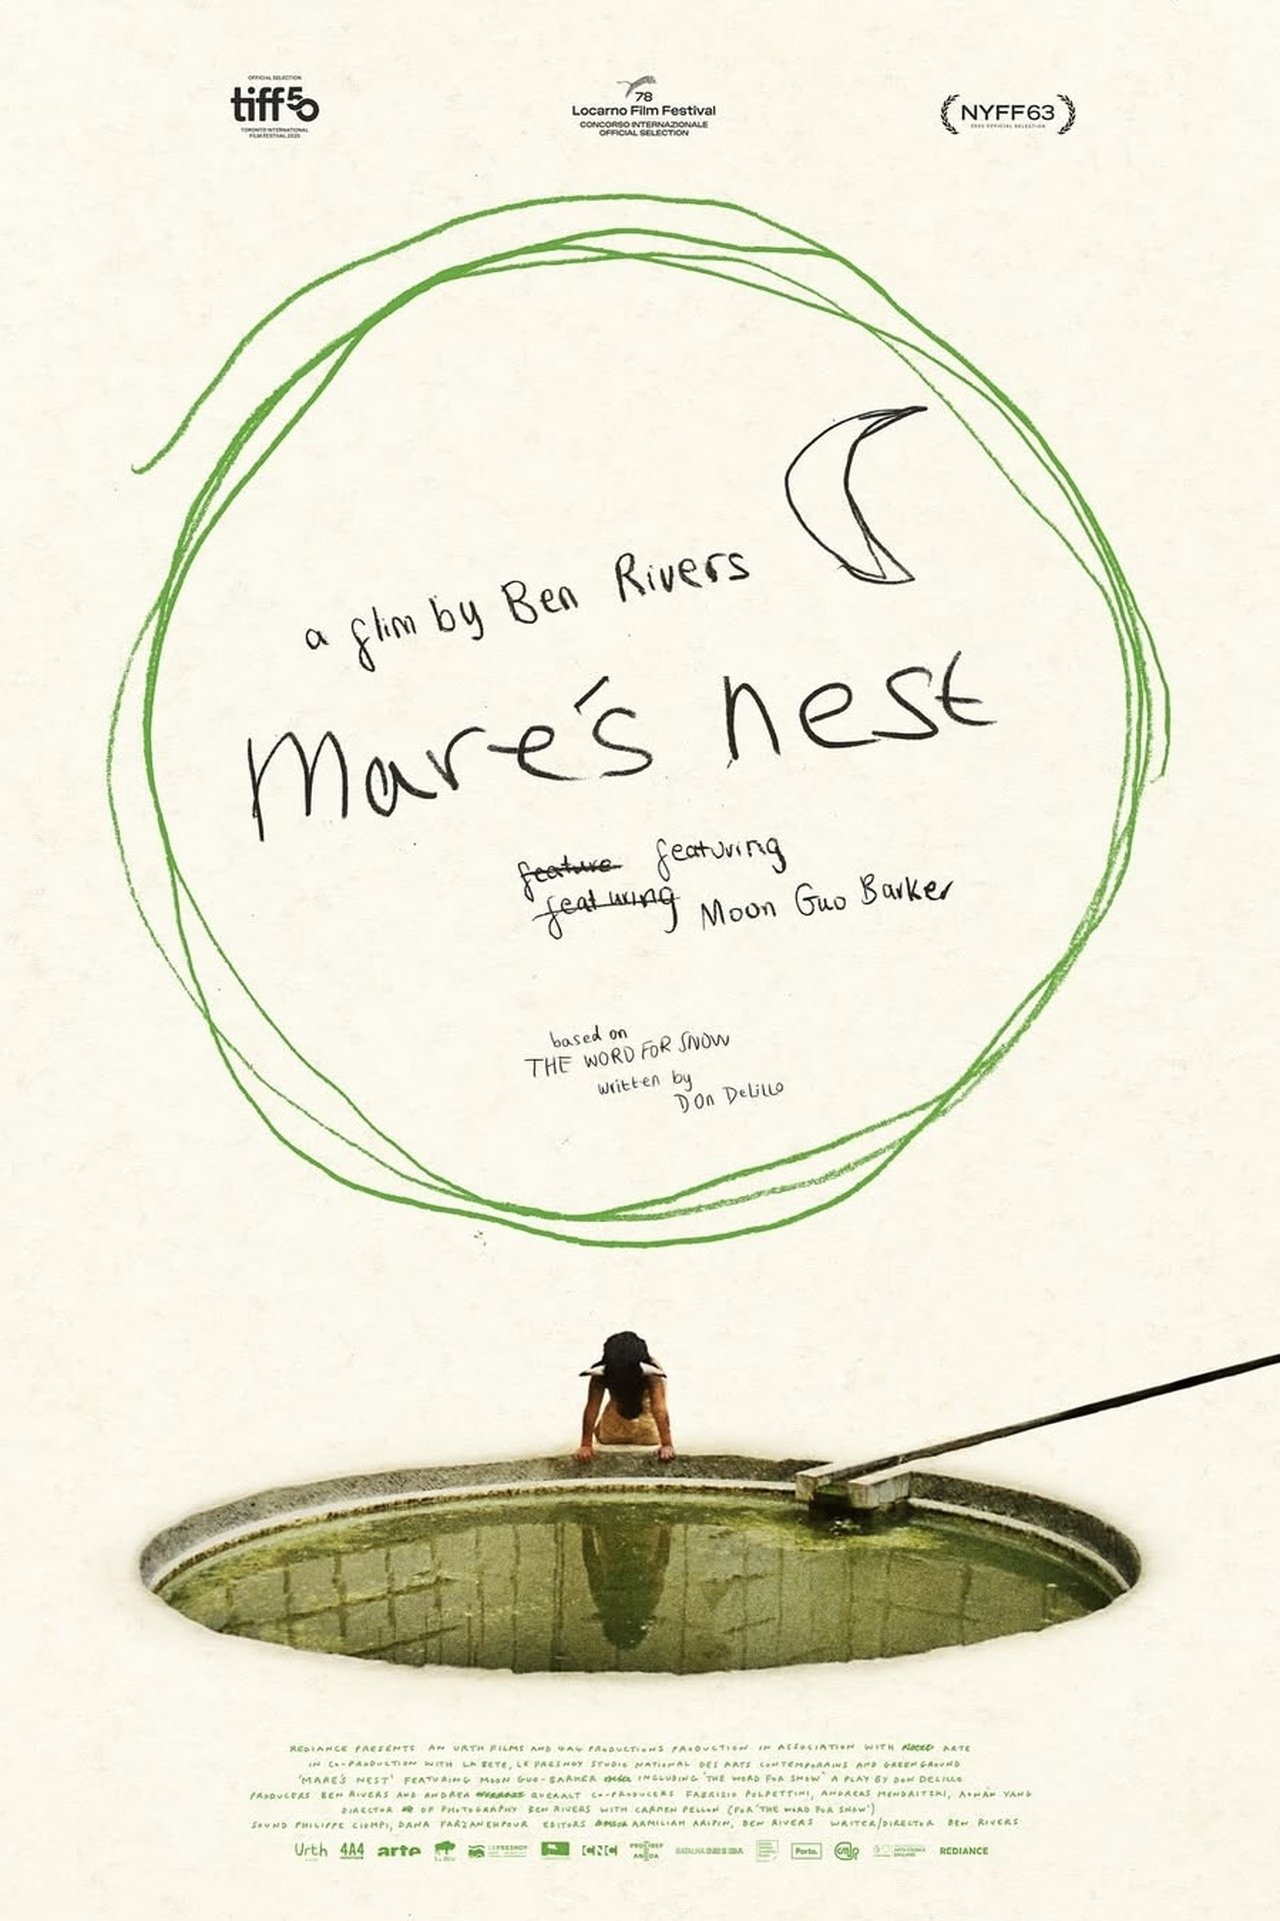 OFFICIAL SELECTION
tiff50
TORONTO INTERNATIONAL
FILM FESTIVAL 2025
78
Locarno Film Festival
CONCORSO INTERNAZIONALE
OFFICIAL SELECTION
NYFF63
2025 OFFICIAL SELECTION
a flim by Ben Rivers
Mare's nest
feature featuring
featuring Moon Guo Barker
based on
THE WORD FOR SNOW
written by
DON DeLILLO
REDIANCE PRESENTS AN URTH FILMS AND 4A4 PRODUCTIONS PRODUCTION IN ASSOCIATION WITH ARTE
IN CO-PRODUCTION WITH LA BETE, LE FRESNOY STUDIO NATIONAL DES ARTS CONTEMPORAINS AND GREENGROUND
'MARE'S NEST' FEATURING MOON GUO-BARKER INCLUDING 'THE WORD FOR SNOW' A PLAY BY DON DELILLO
PRODUCERS BEN RIVERS AND ANDREA QUERALT CO-PRODUCERS FABRIZIO POLPETTINI, ANDREAS MENDRITZKI, AONAN YANG
DIRECTOR OF PHOTOGRAPHY BEN RIVERS WITH CARMEN PELLON (FOR 'THE WORD FOR SNOW')
SOUND PHILIPPE CIOMPI, DANA FARZANEHPOUR EDITORS ARMILIAH ARIPIN, BEN RIVERS WRITER/DIRECTOR BEN RIVERS
Urth 4A4 arte LE FRESNOY CNC PROCIREP ANGOA Porto. REDIANCE